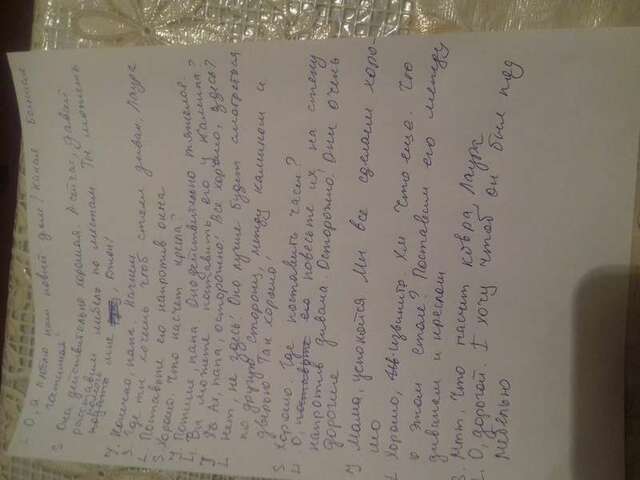 L О, я люблю наш новый дом! Какая большая
гостиная!
S Она действительно хорошая. А сейчас, давай
расставим мебель по местам. Ты можешь
помочь мне, Джон!
J. Конечно, папа. Начнем
S Где ты хочешь чтоб стоял диван, Лаура
L. Поставьте его напротив окна
S. Хорошо. Что насчет кресла?
J Потише, папа. Оно действительно тяжелое.
L. Вы можете поставить его у камина?
J Ах, папа, осторожно! Все хорошо, здесь?
L Нет, не здесь! Оно лучше будет смотреться
по другую сторону, между камином и
дверью. Так хорошо!
S Хорошо. Где поставить часы?
L О, повесьте их на стену
напротив дивана. Осторожно. Они очень
дорогие
J Мама, успокойся Мы все сделаем хоро-
шо
L Хорошо, извините. Хм Что еще. Что
о этом столе? Поставим его между
диваном и креслом
S. Мтт. Что насчет ковра, Лаура
L. О, дорогой. I хочу чтоб он был под
мебелью